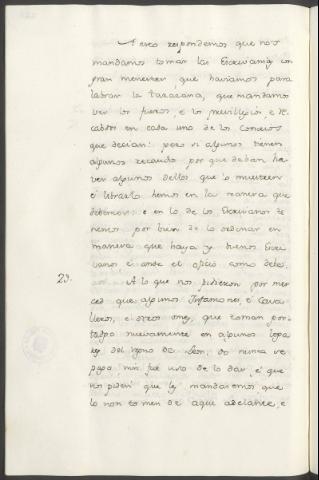 A esto respondemos que nos
mandamos tomar las Escrivanias con
gran menester que haviamos para
labrar la tarazana, que mandamos
ver los fueros, e los previllejios, e re
cabdos en cada uno de los Concejos
que decian: pero si algunos tienen
algunos recaudos por que deban ha
ver algunos dellos que lo muestren
é librarlo hemos en la manera que
debieremos: e en lo de los Escrivanos te
nemos por bien de lo ordenar en
manera que haya y buenos Escri
vanos é ande el oficio como debe.
23. A lo que nos pidieron por mer
ced que algunos Infanzones, é Cava
lleros, é otros omes, que toman por
tadgo nuevamente en algunos loga
res del regno de Leon, do nunca se
pagó, nin fue uso de lo dar, é que
nos pidien que les mandasemos que
lo non tomen de aqui adelante, e